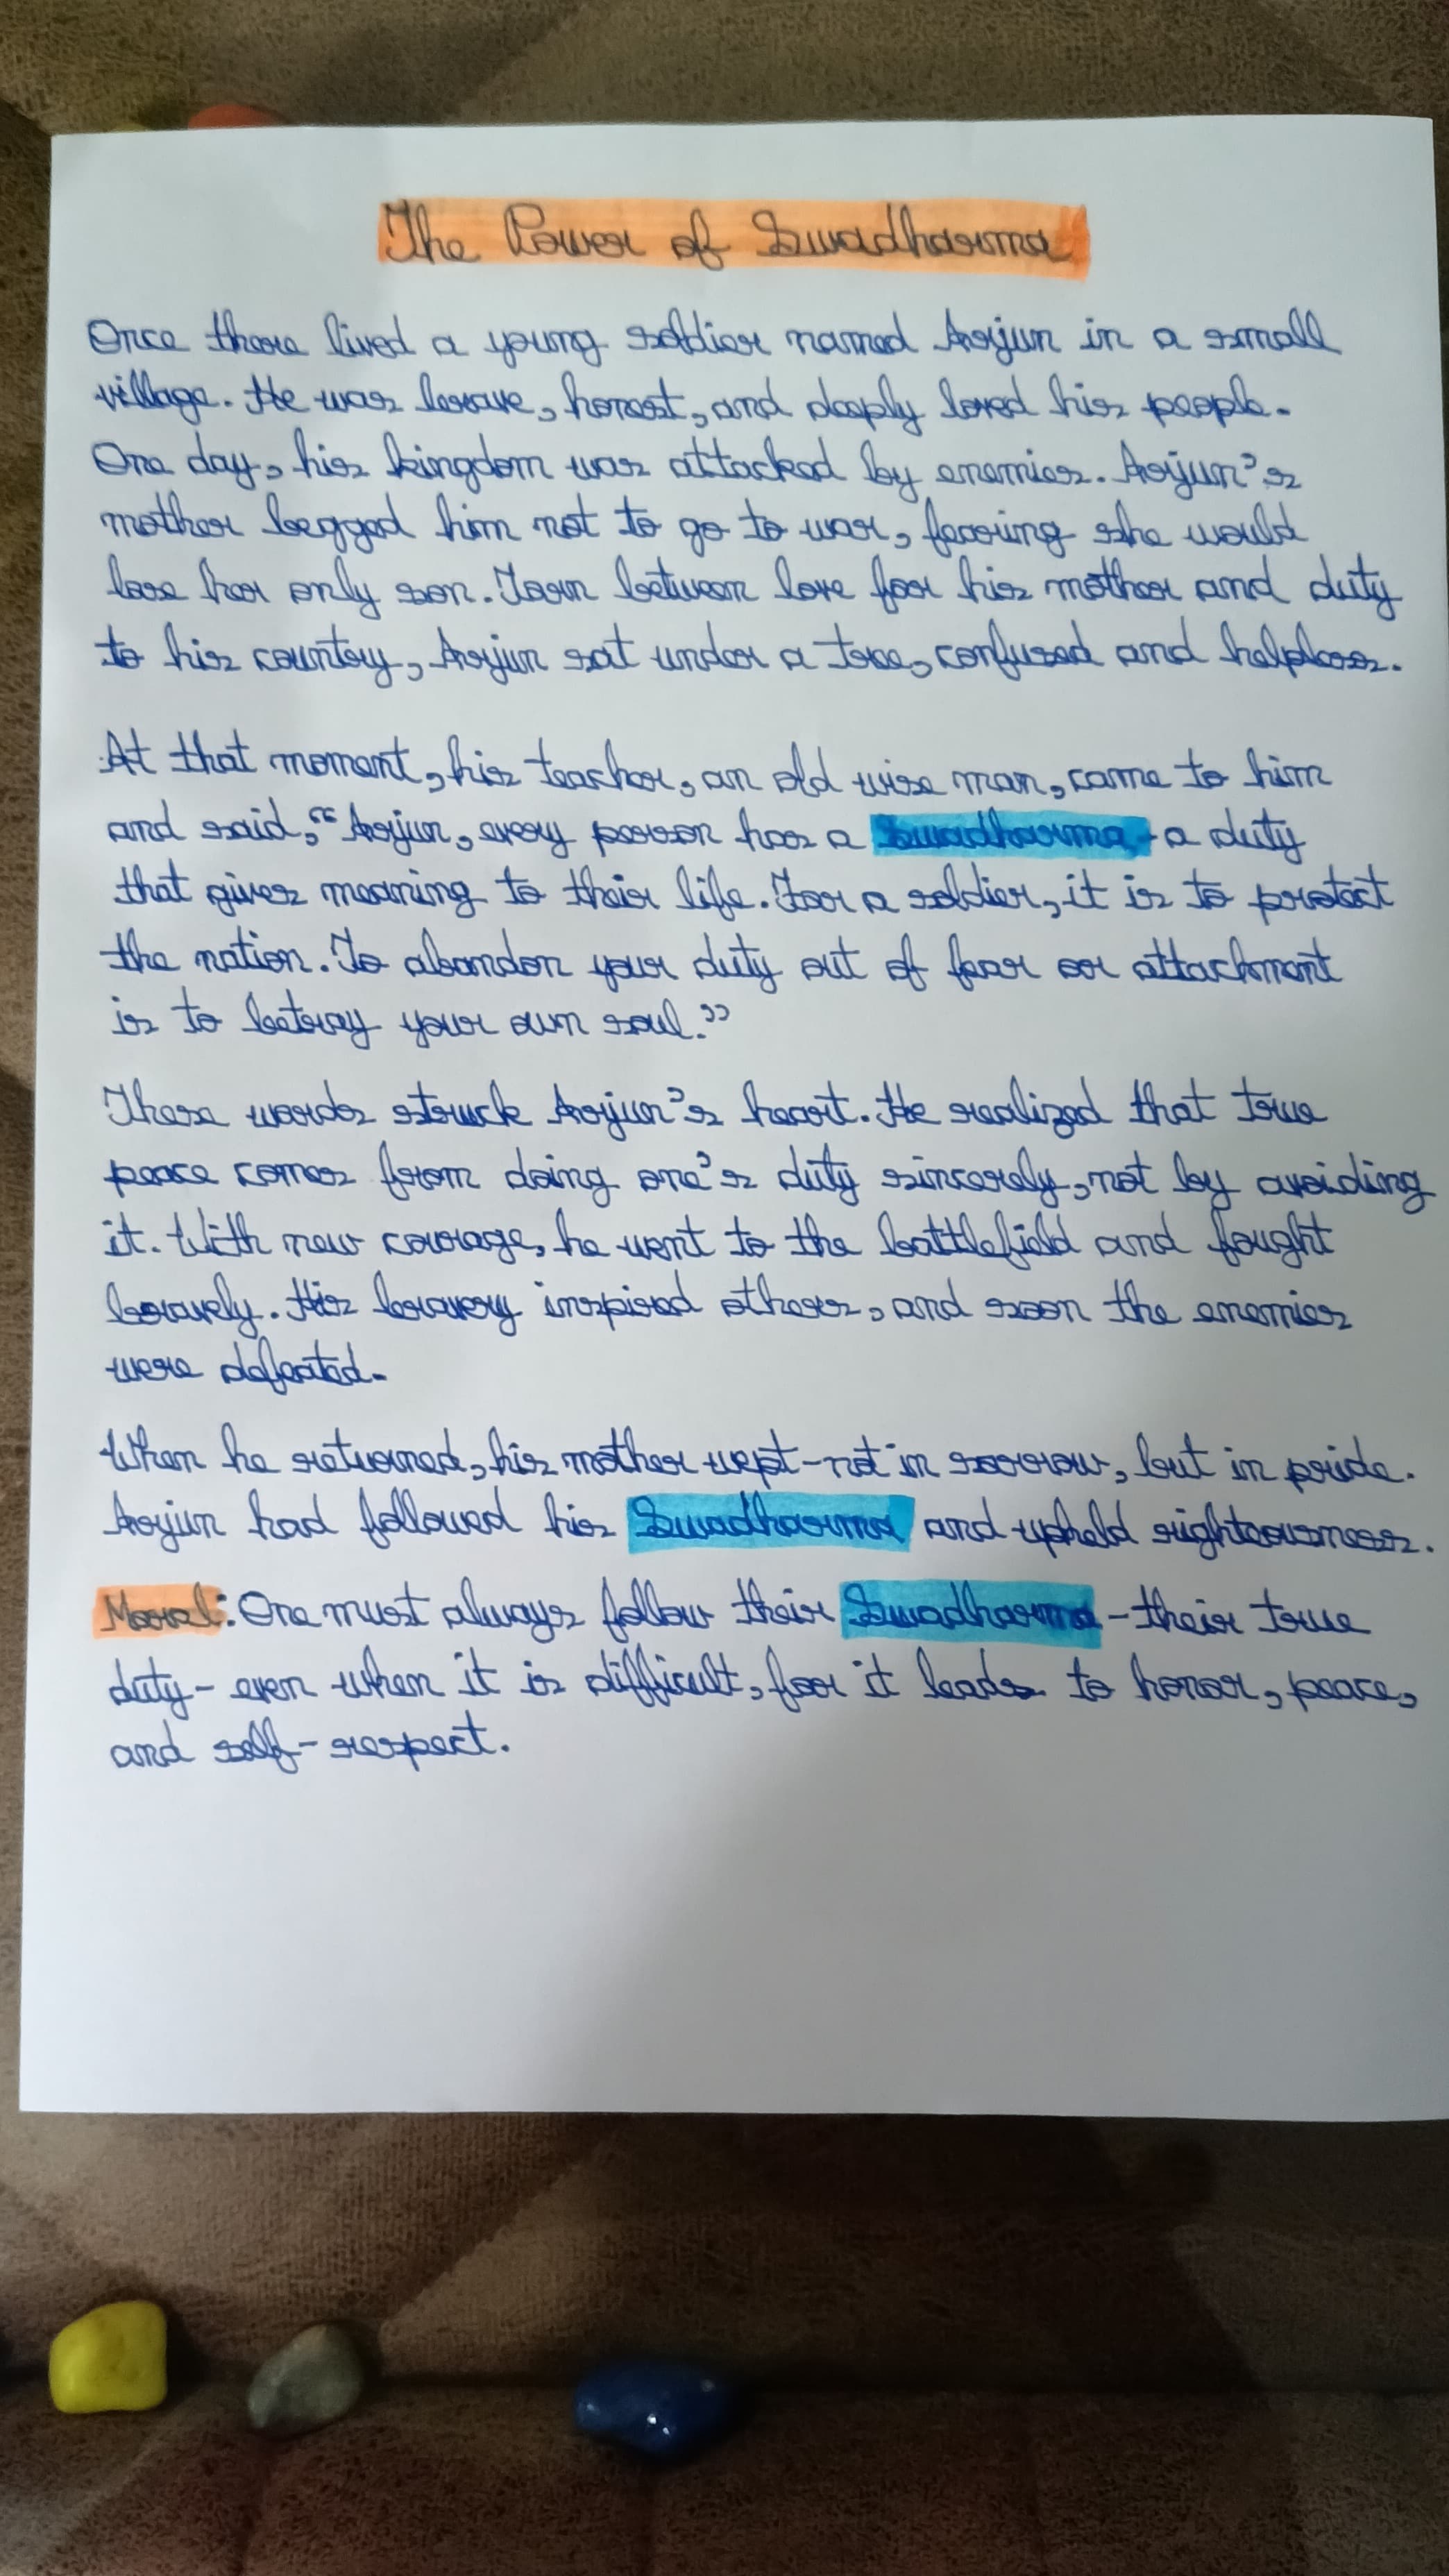 The Power of Swadharma
Once there lived a young soldier named Arjun in a small
village. He was brave, honest, and deeply loved his people.
One day, his kingdom was attacked by enemies. Arjun's
mother begged him not to go to war, fearing she would
lose her only son. Torn between love for his mother and duty
to his country, Arjun sat under a tree, confused and helpless.
At that moment, his teacher, an old wise man, came to him
and said, "Arjun, every person has a Swadharma - a duty
that gives meaning to their life. For a soldier, it is to protect
the nation. To abandon your duty out of fear or attachment
is to betray your own soul."
These words struck Arjun's heart. He realized that true
peace comes from doing one's duty sincerely, not by avoiding
it. With new courage, he went to the battlefield and fought
bravely. His bravery inspired others, and soon the enemies
were defeated.
When he returned, his mother wept - not in sorrow, but in pride.
Arjun had followed his Swadharma and upheld righteousness.
Moral: One must always follow their Swadharma - their true
duty - even when it is difficult, for it leads to honor, peace,
and self-respect.